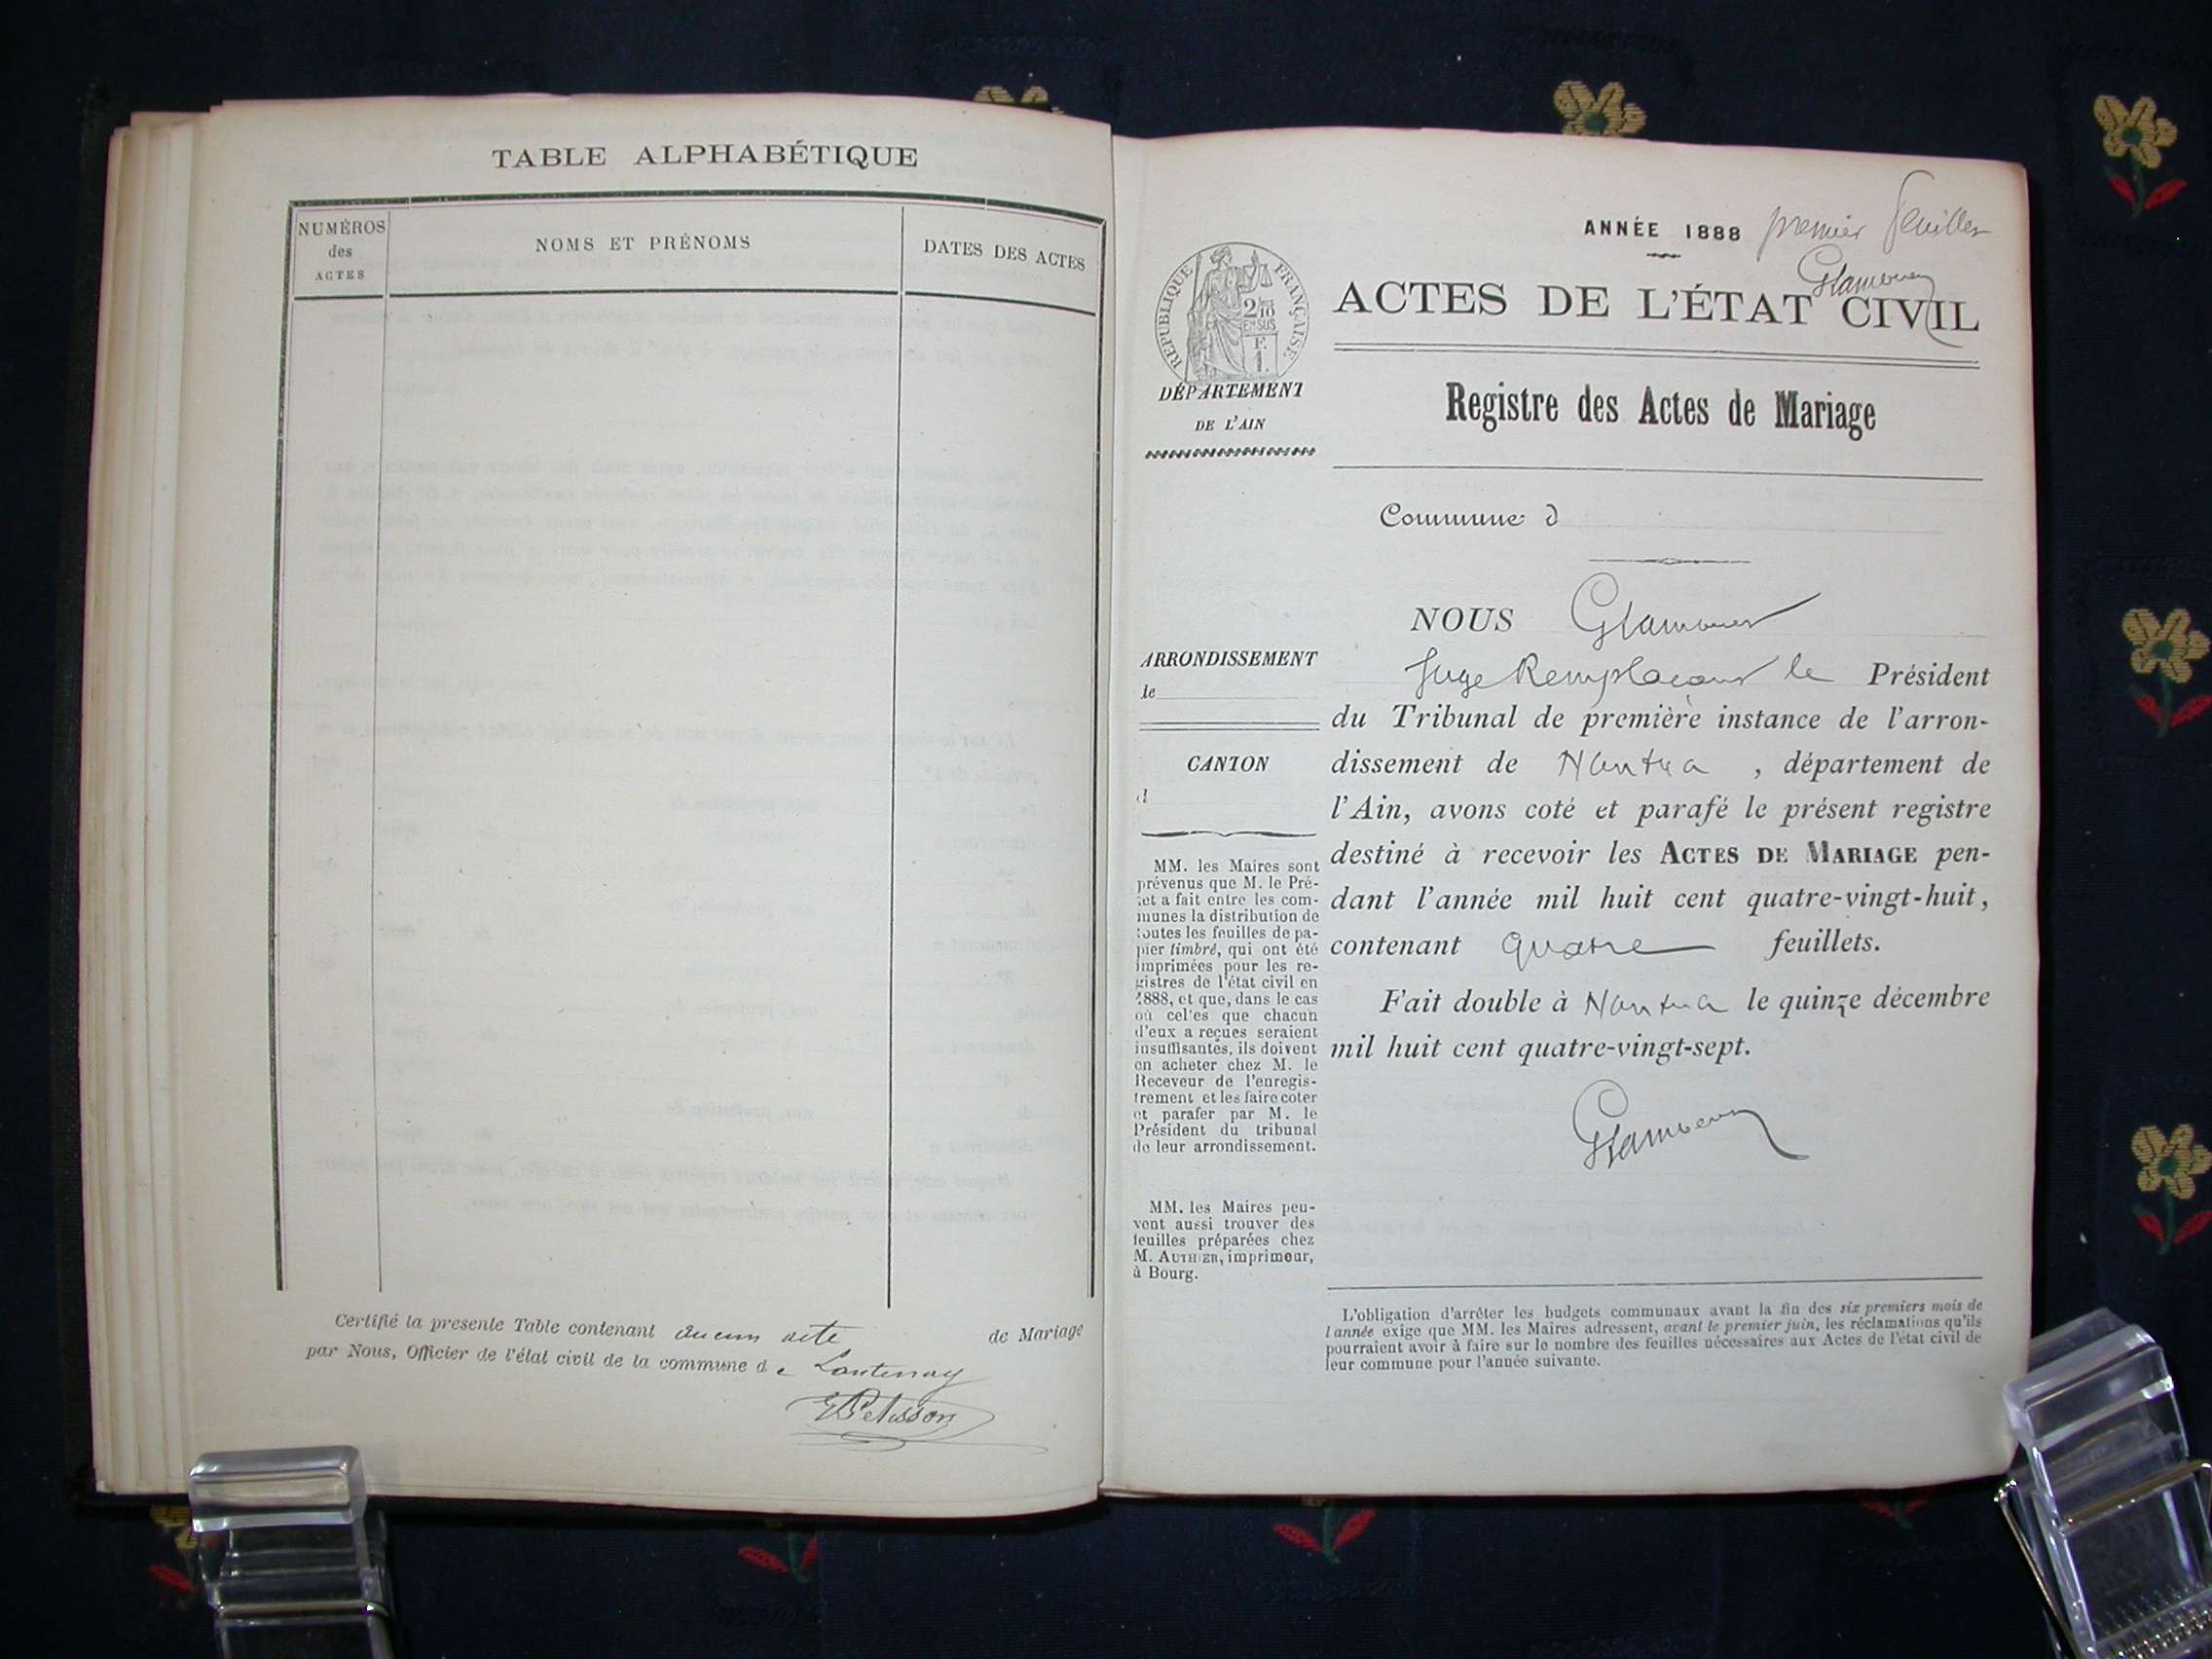 TABLE ALPHABÉTIQUE
NUMÉROS
des
ACTES
NOMS ET PRÉNOMS
DATES DES ACTES
Certifié la presente Table contenant aucun acte de Mariage
par Nous, Officier de l'état civil de la commune de Lantenay
ANNÉE 1888 premier feuillet
RÉPUBLIQUE FRANÇAISE
2/10
EN SUS
F.
1.
ACTES DE L'ÉTAT CIVIL
DÉPARTEMENT
DE L'AIN
Registre des Actes de Mariage
Commune d
ARRONDISSEMENT
le
CANTON
d
MM. les Maires sont
prévenus que M. le Pré-
fet a fait entre les com-
munes la distribution de
toutes les feuilles de pa-
pier timbré, qui ont été
imprimées pour les re-
gistres de l'état civil en
1888, et que, dans le cas
où celles que chacun
d'eux a reçues seraient
insuffisantes, ils doivent
en acheter chez M. le
Receveur de l'enregis-
trement et les faire coter
et parafer par M. le
Président du tribunal
de leur arrondissement.
MM. les Maires peu-
vent aussi trouver des
feuilles préparées chez
M. AUTHIER, imprimeur,
à Bourg.
NOUS
Juge Remplaçant le Président
du Tribunal de première instance de l'arron-
dissement de Nantua, département de
l'Ain, avons coté et parafé le présent registre
destiné à recevoir les ACTES DE MARIAGE pen-
dant l'année mil huit cent quatre-vingt-huit,
contenant quatre feuillets.
Fait double à Nantua le quinze décembre
mil huit cent quatre-vingt-sept.
L'obligation d'arrêter les budgets communaux avant la fin des six premiers mois de
l'année exige que MM. les Maires adressent, avant le premier juin, les réclamations qu'ils
pourraient avoir à faire sur le nombre des feuilles nécessaires aux Actes de l'état civil de
leur commune pour l'année suivante.